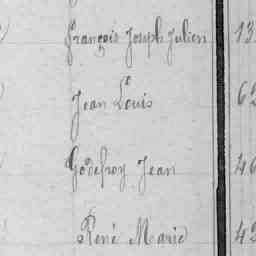 François Joseph Julien 13
Jean Louis 62
Godefroy Jean 46
René Marie 42